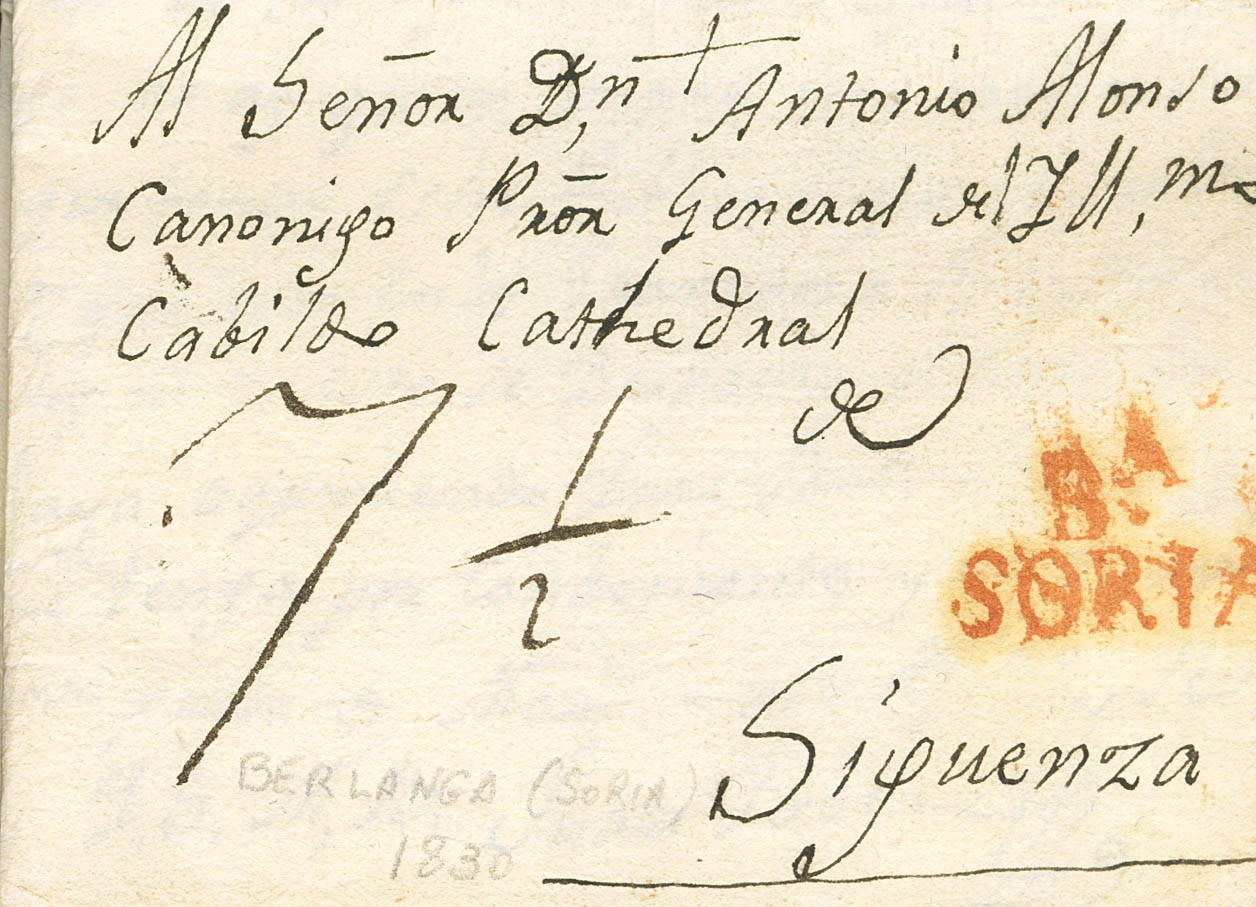 Al Señor Dn. Antonio Alonso
Canonigo Prōr General del Yll,mo
Cabildo Cathedral
de
7 1/2
B.A
SORIA
Siguenza
BERLANGA (SORIA)
1830